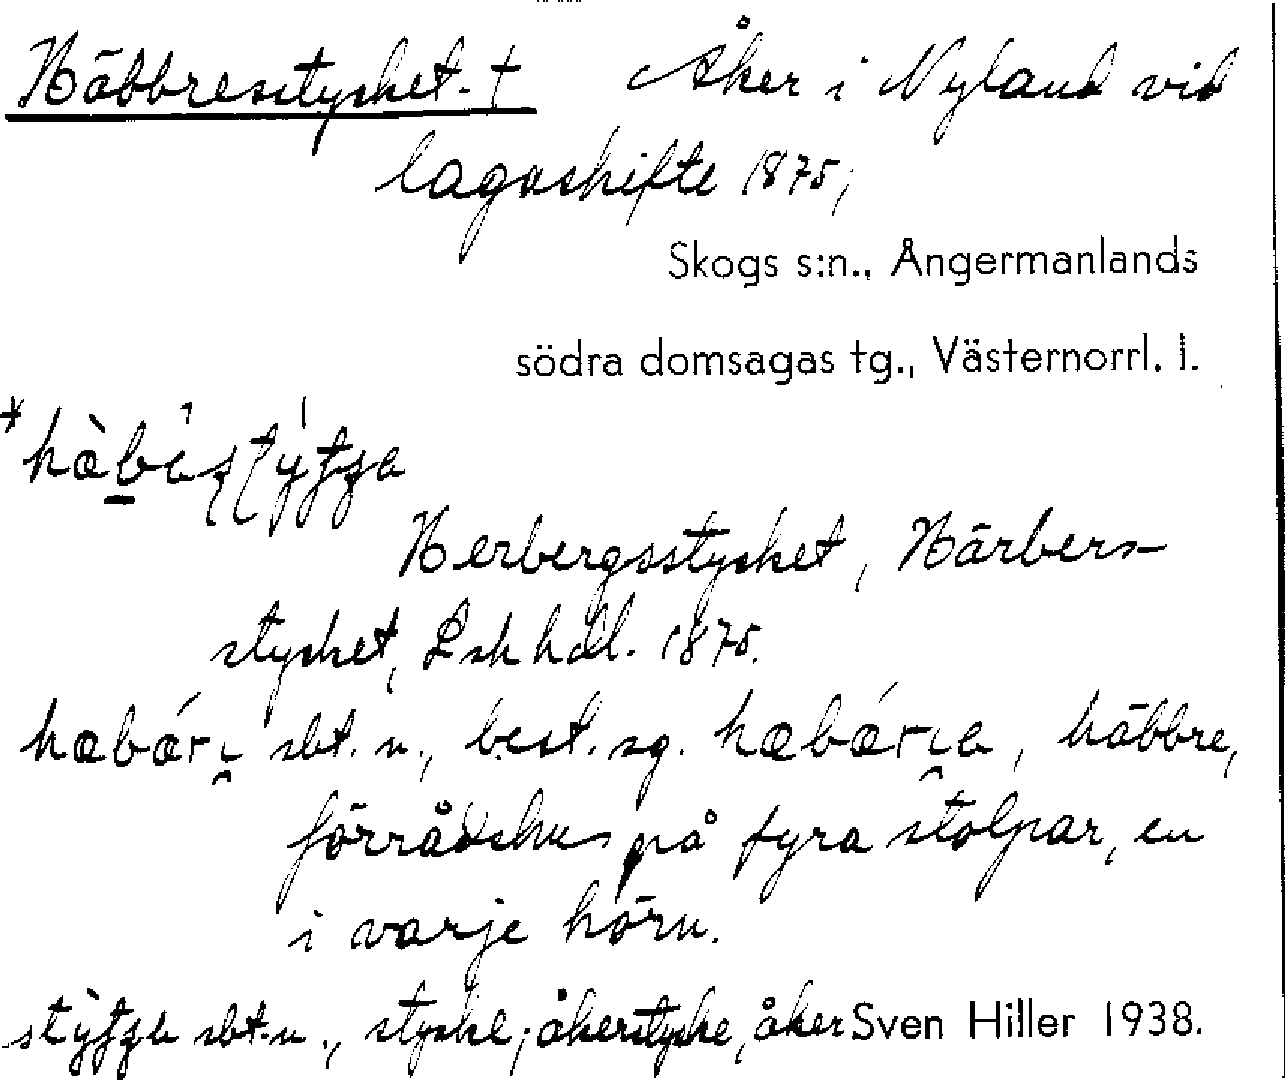 Häbbrestycket. † Åker i Nyland vid
lagaskifte 1875;
Skogs s:n., Ångermanlands
södra domsagas tg., Västernorrl. l.
Herbergsstycket, Härbers-
stycket, Lskhdl. 1875.
sbt. n., best. sg. häbbre,
förrådshus på fyra stolpar, en
i varje hörn.
sbt. n., stycke; åkerstycke, åker Sven Hiller 1938.